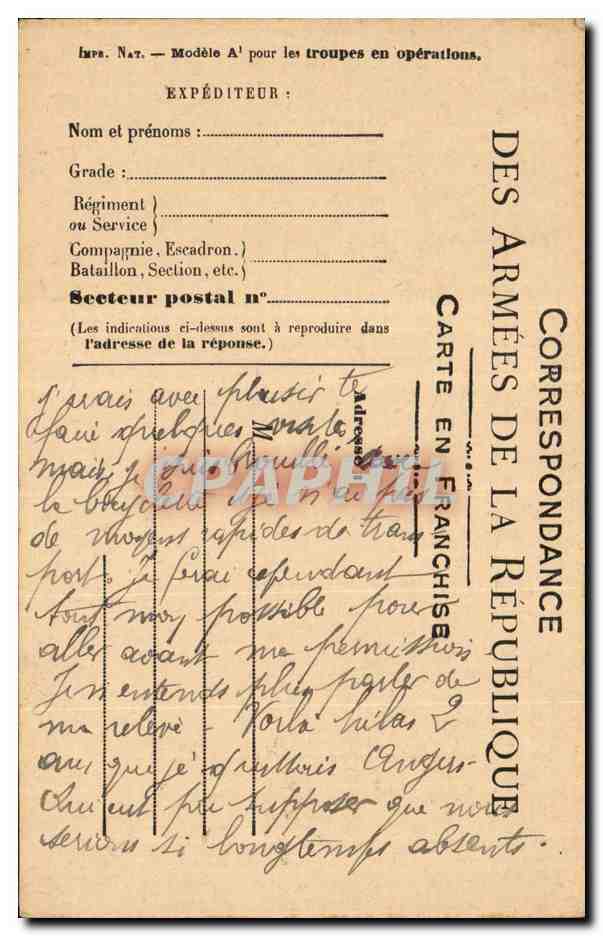 IMPR. NAT. — MODÈLE A¹ pour les troupes en opérations.
EXPÉDITEUR :
Nom et prénoms :
Grade :
Régiment
ou Service }
Compagnie, Escadron. }
Bataillon, Section, etc. }
Secteur postal n°
(Les indications ci-dessus sont à reproduire dans
l'adresse de la réponse.)
CORRESPONDANCE
DES ARMÉES DE LA RÉPUBLIQUE
CARTE EN FRANCHISE
Adresse :
M
J'irais avec plaisir te
faire quelques visites
mais je suis brouillé avec
la bicyclette et je n'ai pas
de moyens rapides de trans
port. Je ferai cependant
tout mon possible pour
aller avant ma permission
Je n'entends plus parler de
ma relève - Voilà hélas 2
ans que je quittais Angers -
Qui eut pu supposer que nous
serions si longtemps absents.
CPARHIL